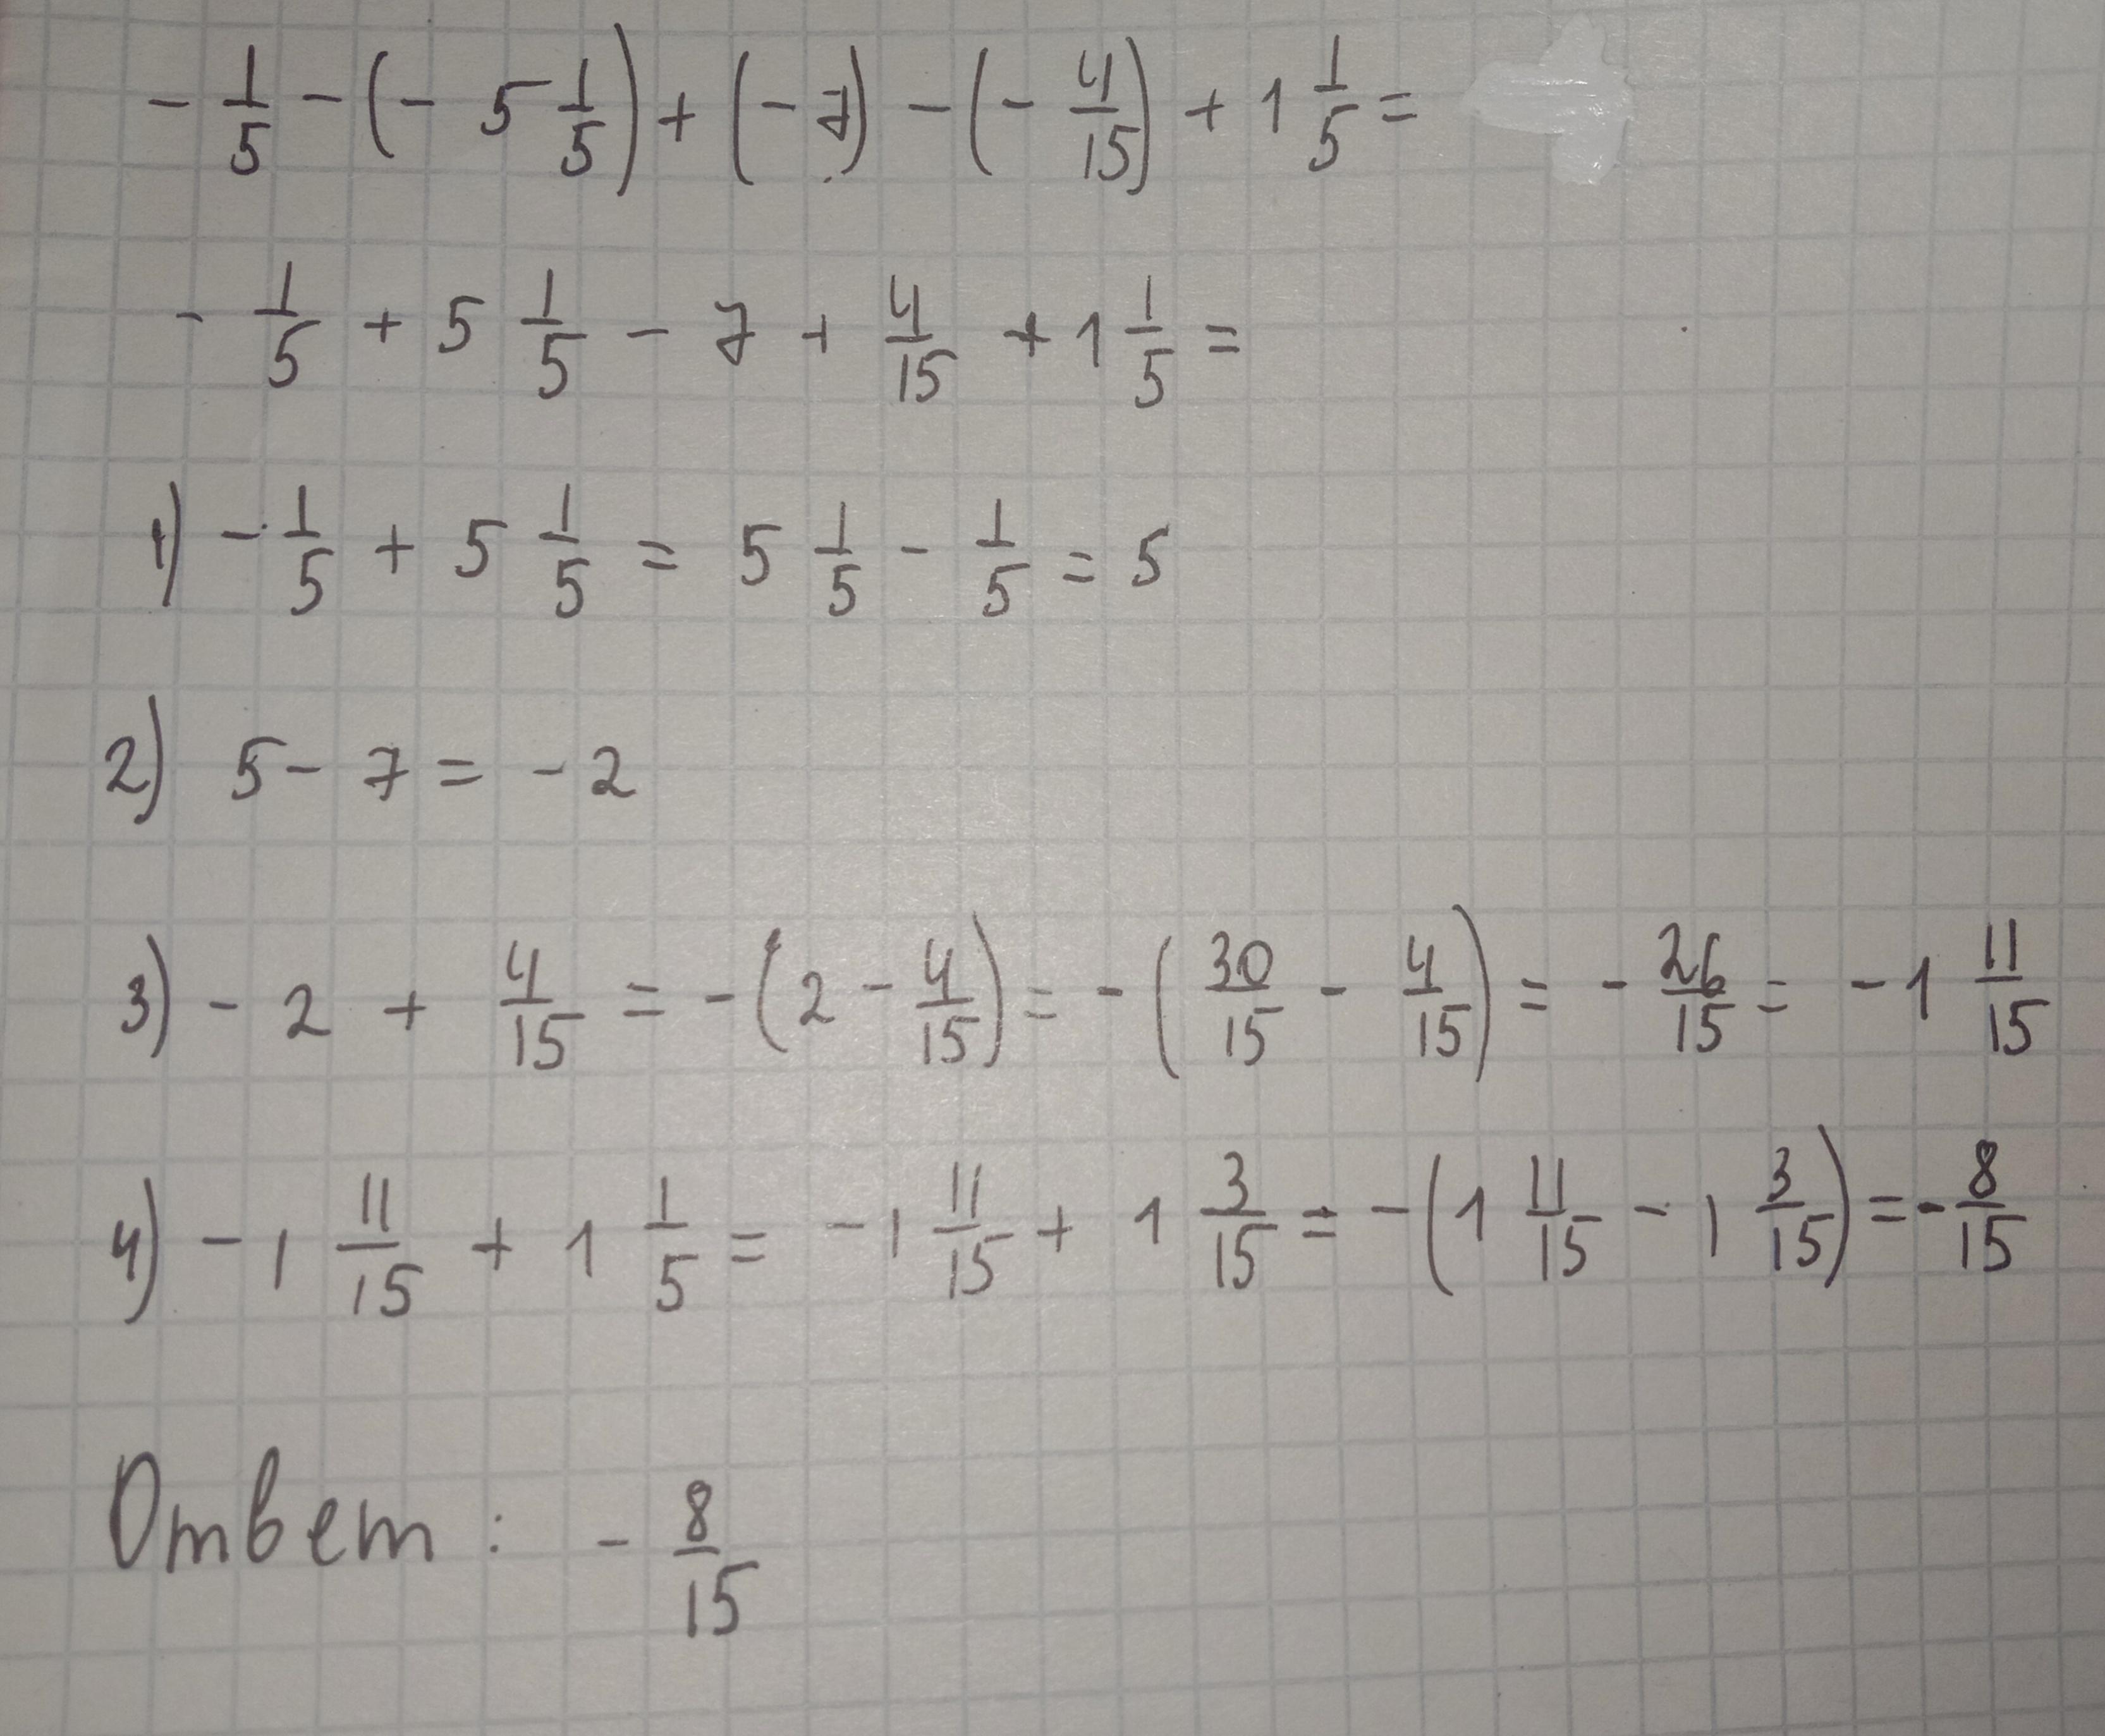 - 1/5 - (- 5 1/5) + (- 7) - (- 4/15) + 1 1/5 =
- 1/5 + 5 1/5 - 7 + 4/15 + 1 1/5 =
1) - 1/5 + 5 1/5 = 5 1/5 - 1/5 = 5
2) 5 - 7 = - 2
3) - 2 + 4/15 = - (2 - 4/15) = - (30/15 - 4/15) = - 26/15 = - 1 11/15
4) - 1 11/15 + 1 1/5 = - 1 11/15 + 1 3/15 = - (1 11/15 - 1 3/15) = - 8/15
Ответ : - 8/15